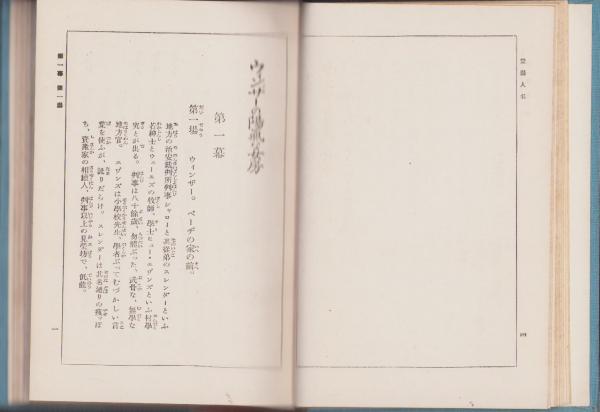 登場人名
四
ウィンザーの陽気な女房
第一幕
第一場　ウィンザー。ページの家の前。
地方の治安裁判所判事シャローと其従弟のスレンダーといふ
若紳士とウェールズの牧師、學士ヒュー・エヴンズといふ村學
究とが出る。判事は八十餘歳、勿體ぶった、武骨な、無學な
地方官。エヴンズは小學校先生、學者ぶってむづかしい言
葉を使ふが、訛りだらけ。スレンダーは其名通りの痩っぽ
ち、資産家の相続人、判事以上の見榮坊で、低能。
第一幕　第一場
一